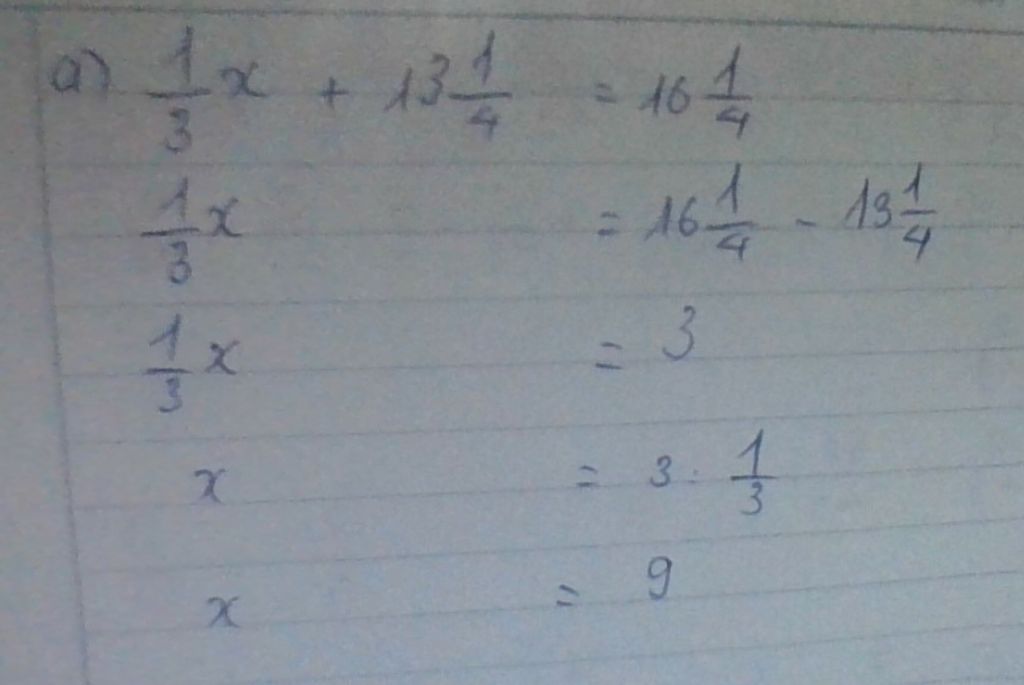 a) 1/3 x + 13 1/4 = 16 1/4
1/3 x = 16 1/4 - 13 1/4
1/3 x = 3
x = 3 : 1/3
x = 9